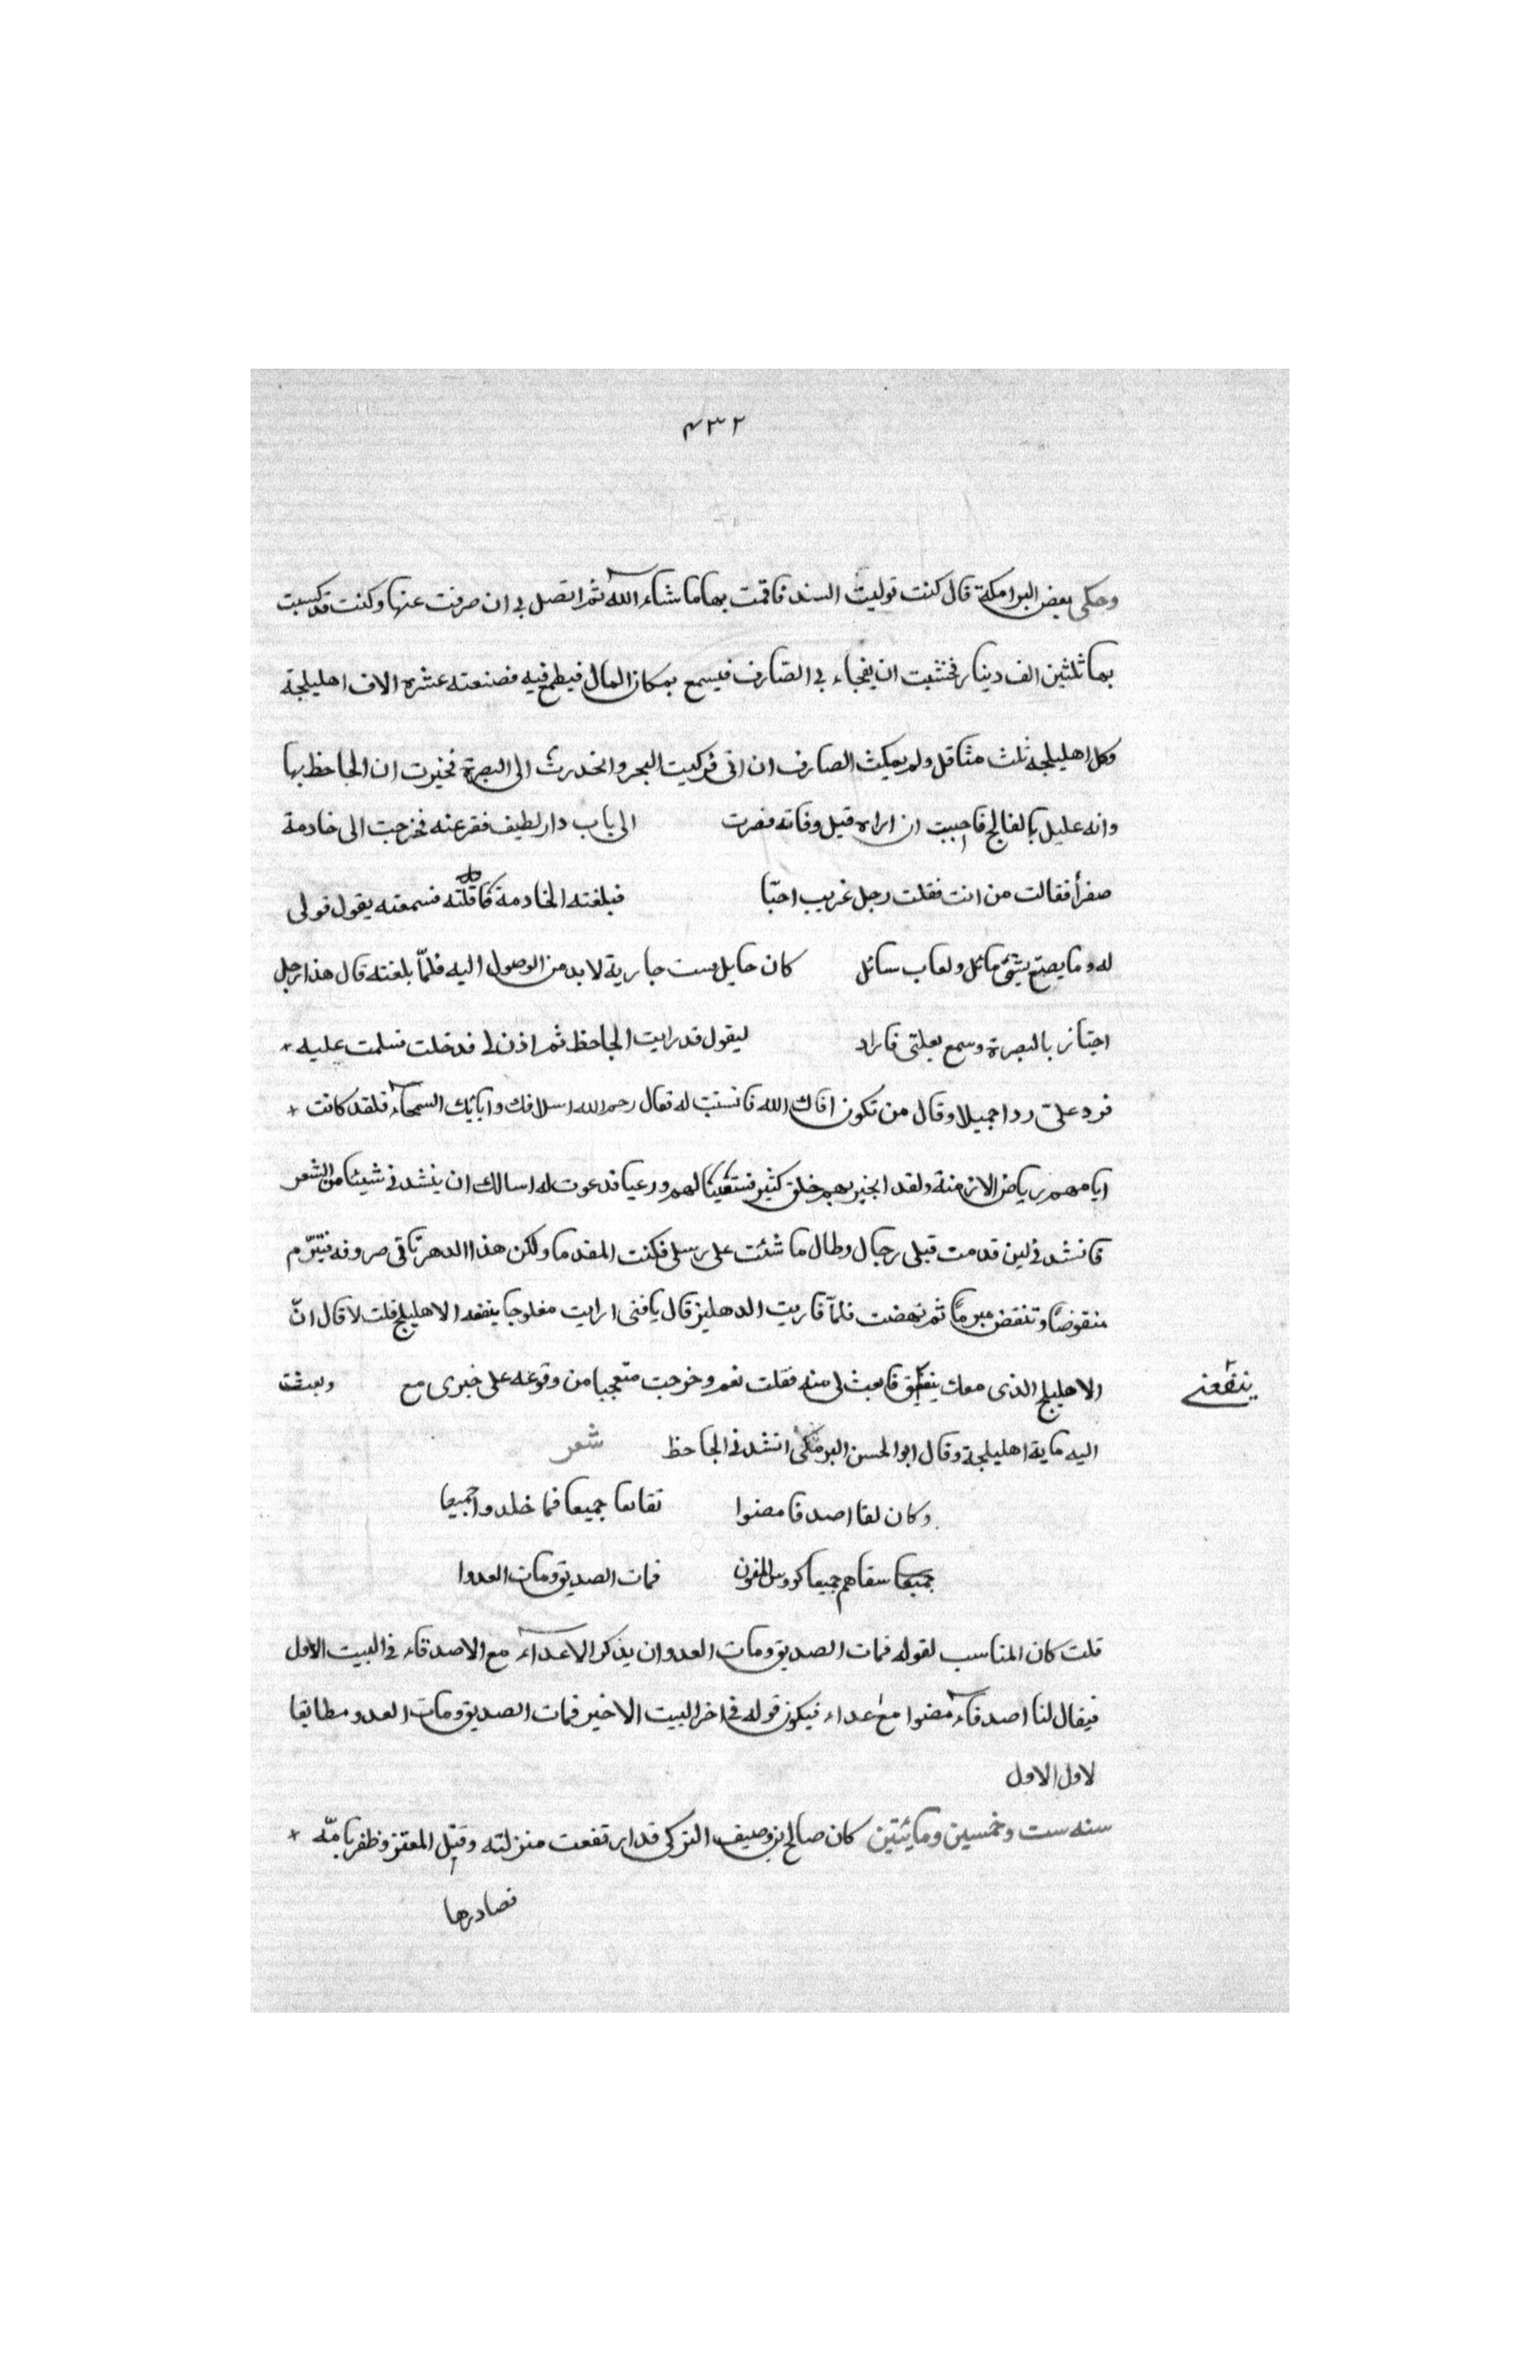 ٤٣٢
وحكى بعض البرامكة قال كنت توليت السند فاقمت بها ما شاء الله ثم اتصل بي ان صرفت عنها وكنت قد كسبت
بها ثلثين الف دينار فخشيت ان يفجاء بي الصارف فيسمع بمكان المال فيطمع فيه فصنعته عشرة الاف اهليلجة
وكل اهليلجة ثلث مثاقل ولم يمكث الصارف ان اتى فركبت البحر وانحدرت الى البصرة فخبرت ان الجاحظ بها
وانه عليل بالفالج فاحببت ان اراه قبل وفاته فصرت الى باب دار لطيف فقرعته فخرجت الى خادمة
صفرأ فقالت من انت فقلت رجل غريب احبّا فبلغته الخادمة ما قلته فسمعته يقول قولى
له وما يصنع بشق مائل ولعاب سائل كان حايل ست جارية لا بد من الوصول اليه فلمّا بلغته قال هذا رجل
اجتاز بالبصرة وسمع بعلتى فاراد ليقول قد رايت الجاحظ ثم اذن لى فدخلت فسلمت عليه
فرد علىّ ردا جميلا وقال من تكون اقاك الله فانتسبت له فقال رحم الله اسلافك وابائك السمحآء فلقد كانت
ايامهم رياض الازمنة ولقد انجبر بهم خلق كثير فسقيا لهم ورعيا فدعوت له اسالك ان ينشدنى شيئا من الشعر
فانشدنى لين قدمت قبلى رجال وطال ما شئت على رسلى فكنت المقدما ولكن هذا الدهر تاتى صروفه فتبرّم
منقوضًا وتنقض مبرمًا ثم نهضت فلمآ قاربت الدهليز قال يا فتى ارايت مفلوجا ينفعه الاهليلج قلت لا قال انّ
الاهليلج الذى معك فابعث لى منه فقلت نعم وخرجت متعجبا من وقوعه على خبرى مع وبعثت
ينفعنى
اليه ماية اهليلجة وقال ابو الحسن البرمكى انشدنى الجاحظ شعر
وكان لقا اصدقا مضوا تفانعا جميعا فما خلدوا جميعا
جميعا سقاهم جميعا كووس المنون فمات الصديق ومات العدوا
قلت كان المناسب لقوله فمات الصديق ومات العدو ان يذكر الاعدآء مع الاصدقاء فى البيت الاول
فيقال لنا اصدقآء مضوا مع عداء فيكون قوله فى اخر البيت الاخير فمات الصديق ومات العدو مطابقا
لاول الاول
سنه ست وخمسين ومائتين كان صالح بن وصيف التركى قد ارتفعت منزلته وقتل المعتز وظفر بامّه
فصادرها